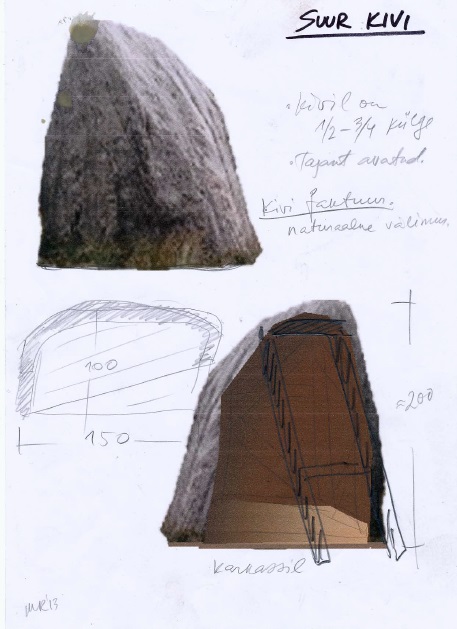 SUUR KIVI
• Kivil on
1/2 – 3/4 külge
• Tagant avatud.
Kivi faktuur.
naturaalne välimus.
100
150
≈200
Karkassil
MR'13